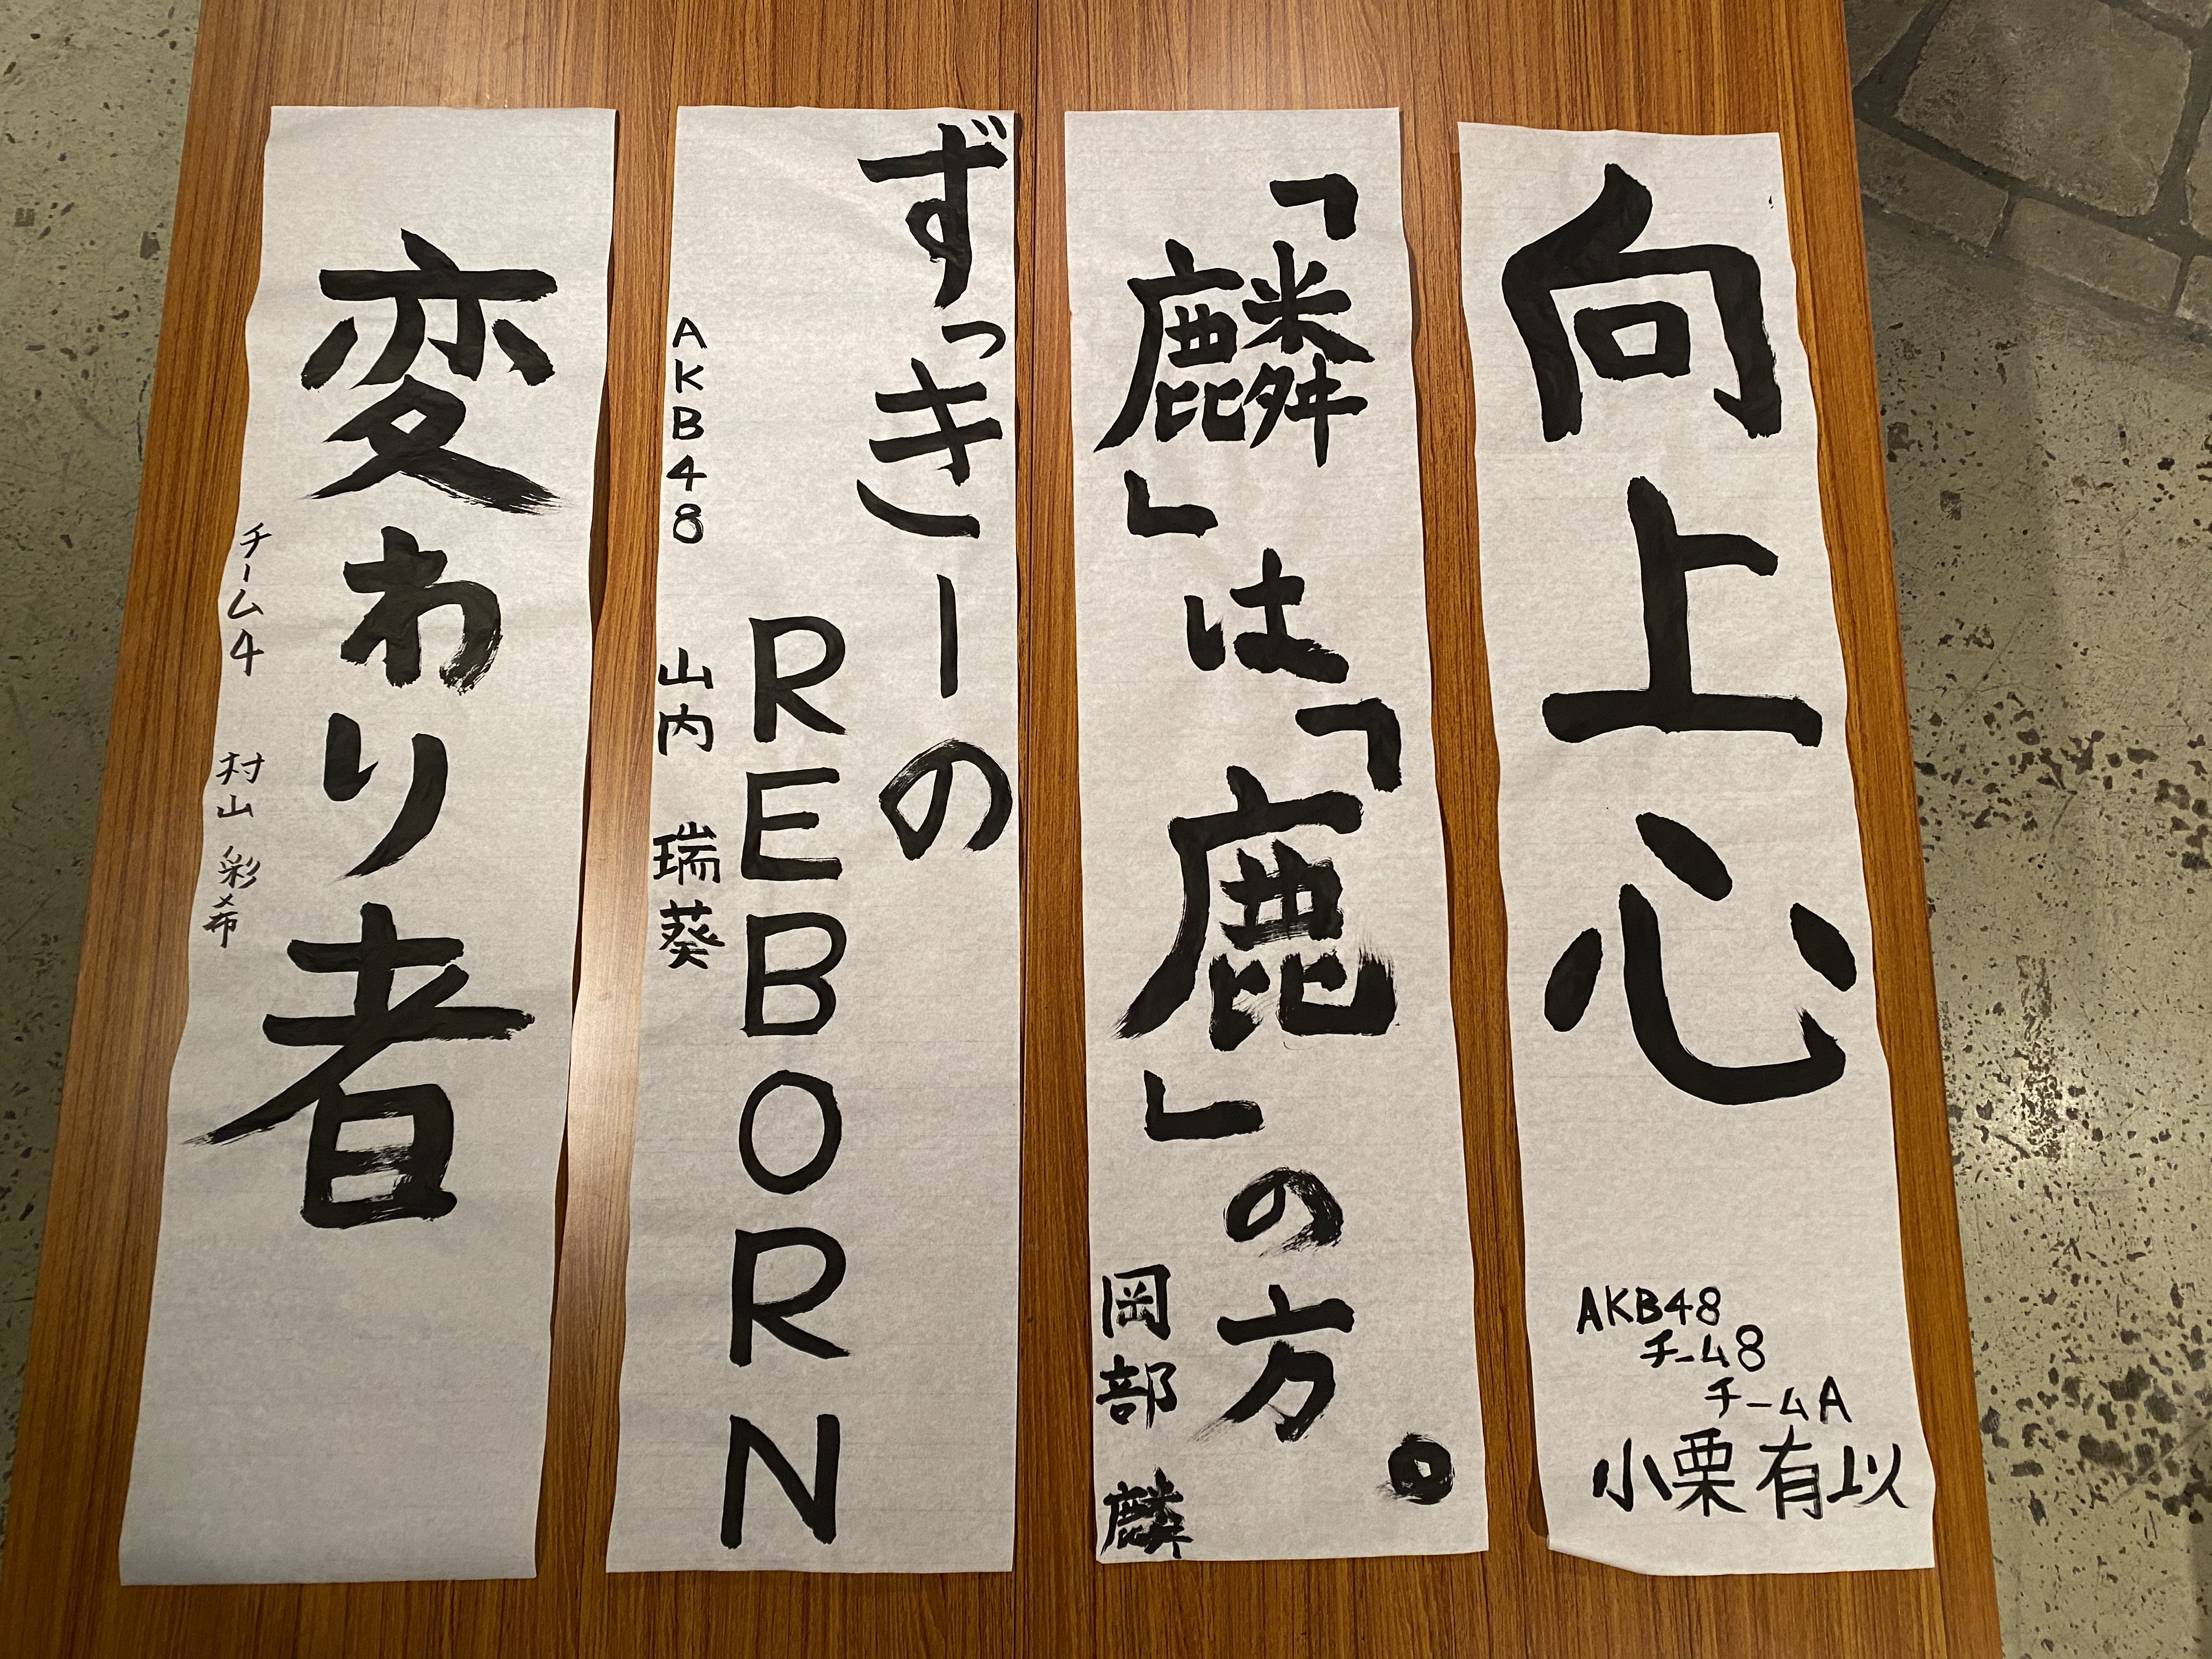 向上心
AKB48
チーム8
チームA
小栗有以
「麟」は「鹿」の方。
岡部 麟
ずっきーの
REBORN
AKB48 山内 瑞葵
変わり者
チーム4 村山 彩希